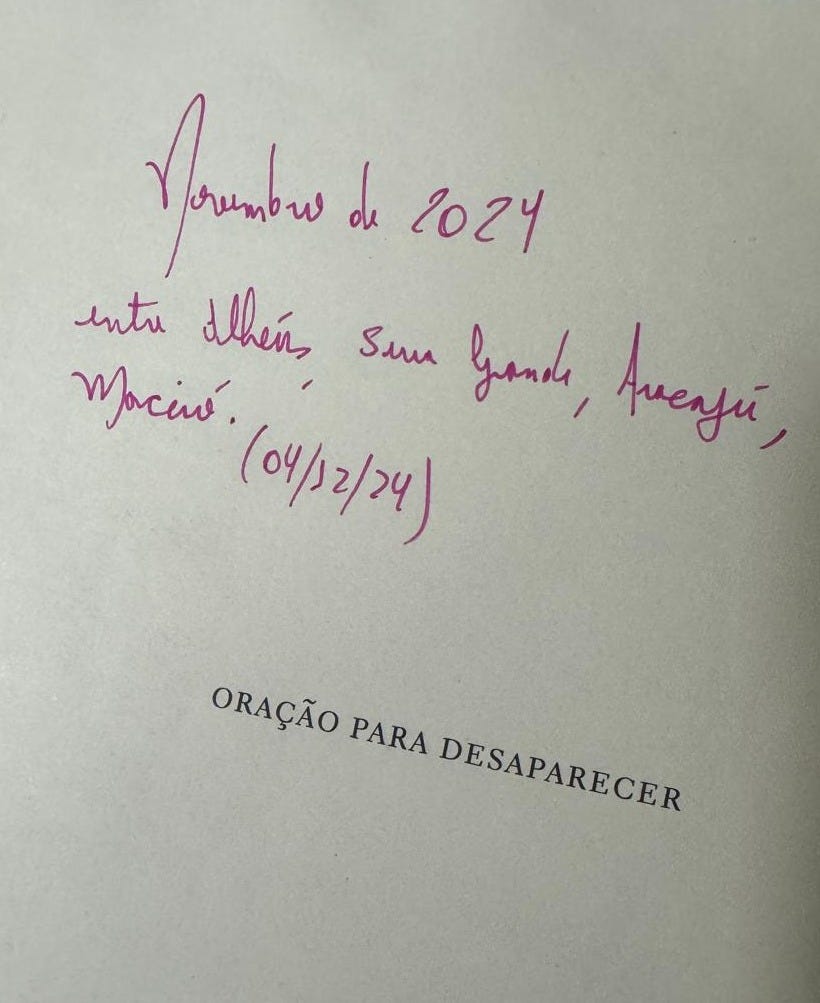 Novembro de 2024
entre Ilhéus, Serra Grande, Aracajú,
Maceió.
(04/12/24)
ORAÇÃO PARA DESAPARECER